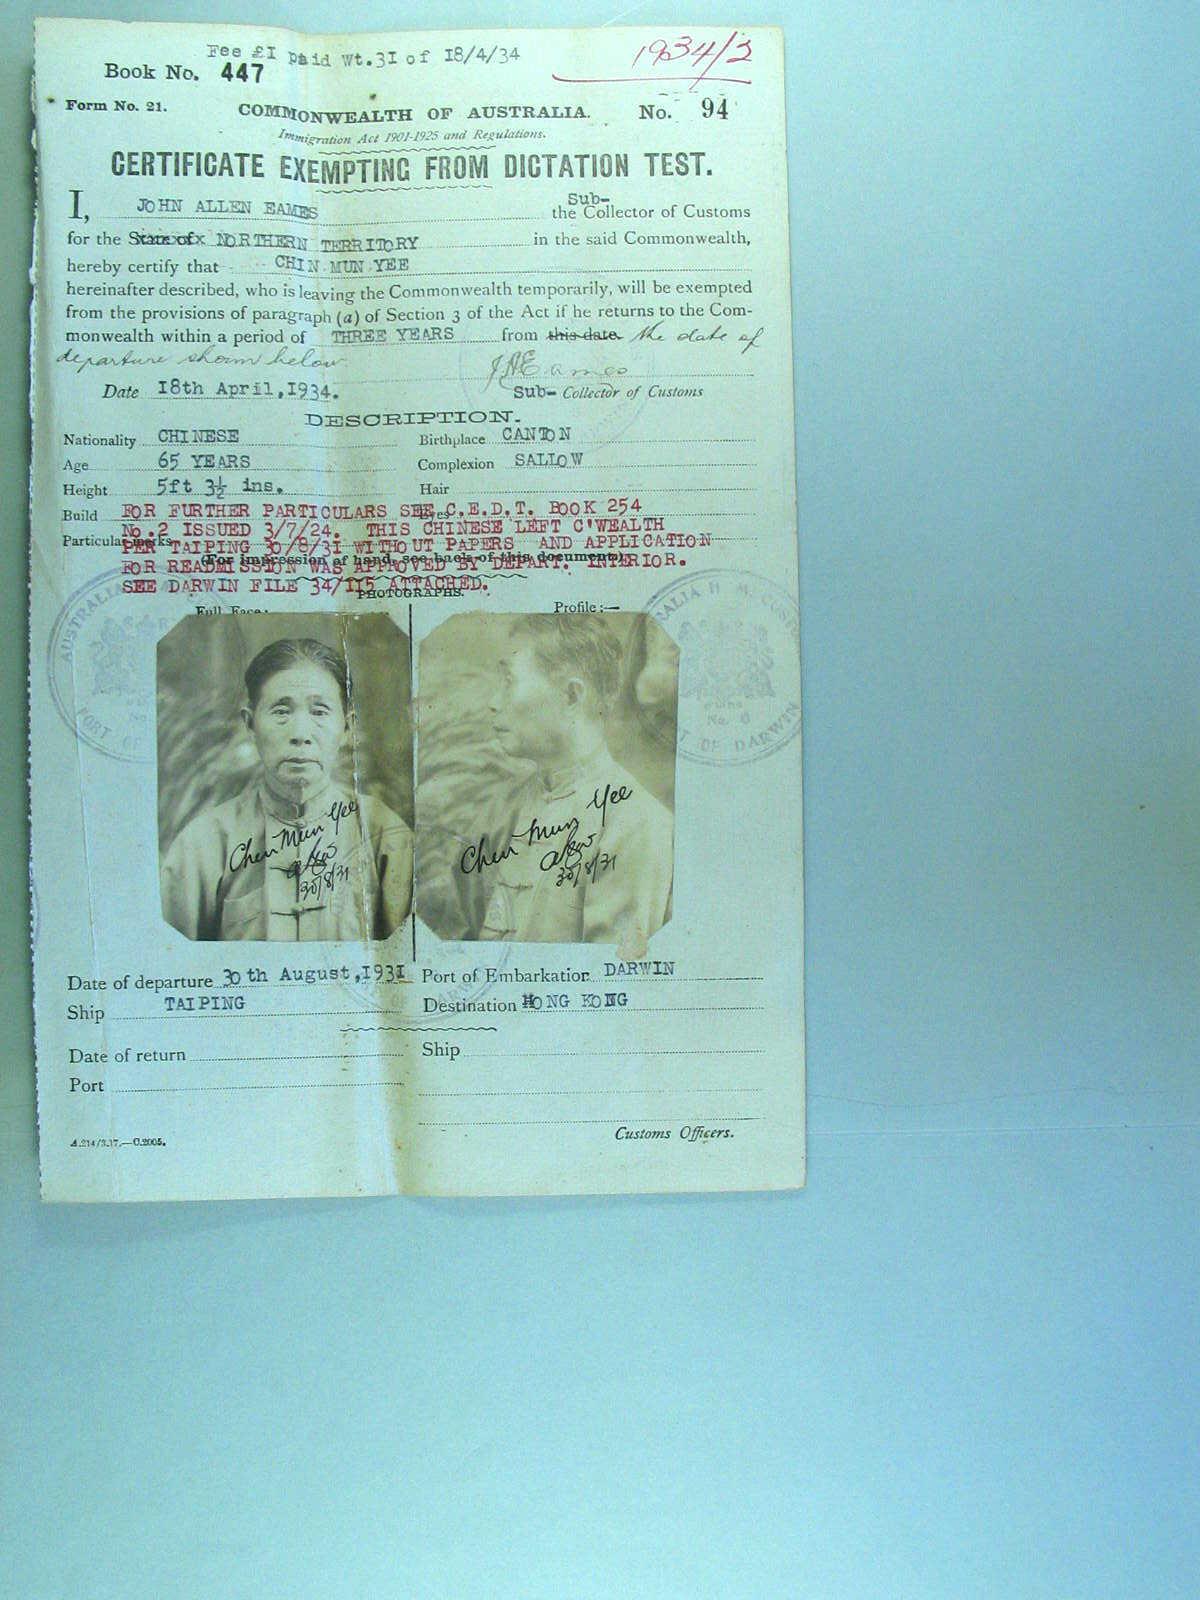 Fee £1 paid Wt.31 of 18/4/34
1934/2
Book No. 447
Form No. 21.
COMMONWEALTH OF AUSTRALIA.
No. 94
Immigration Act 1901-1925 and Regulations.
CERTIFICATE EXEMPTING FROM DICTATION TEST.
I, JOHN ALLEN EAMES the Sub-Collector of Customs
for the State of NORTHERN TERRITORY in the said Commonwealth,
hereby certify that CHIN MUN YEE
hereinafter described, who is leaving the Commonwealth temporarily, will be exempted
from the provisions of paragraph (a) of Section 3 of the Act if he returns to the Com-
monwealth within a period of THREE YEARS from this date. the date of
departure shown below.
J A Eames
Date 18th April, 1934. Sub- Collector of Customs
DESCRIPTION.
Nationality CHINESE Birthplace CANTON
Age 65 YEARS Complexion SALLOW
Height 5ft 3½ ins. Hair
Build Eyes
FOR FURTHER PARTICULARS SEE C.E.D.T. BOOK 254
No.2 ISSUED 3/7/24. THIS CHINESE LEFT C'WEALTH
Particular marks
PER TAIPING 30/8/31 WITHOUT PAPERS AND APPLICATION
(For impression of hand, see back of this document)
FOR READMISSION WAS APPROVED BY DEPART. INTERIOR.
SEE DARWIN FILE 34/115 ATTACHED.
PHOTOGRAPHS.
Full Face:- Profile:—
AUSTRALIA
PORT OF
AUSTRALIA H. M. CUSTOMS
No. 6
PORT OF DARWIN
Chin Mun Yee
30/8/31
Chin Mun Yee
30/8/31
Date of departure 30th August, 1931 Port of Embarkation DARWIN
Ship TAIPING Destination HONG KONG
Date of return Ship
Port
Customs Officers.
A.214/3.17.—C.2005.